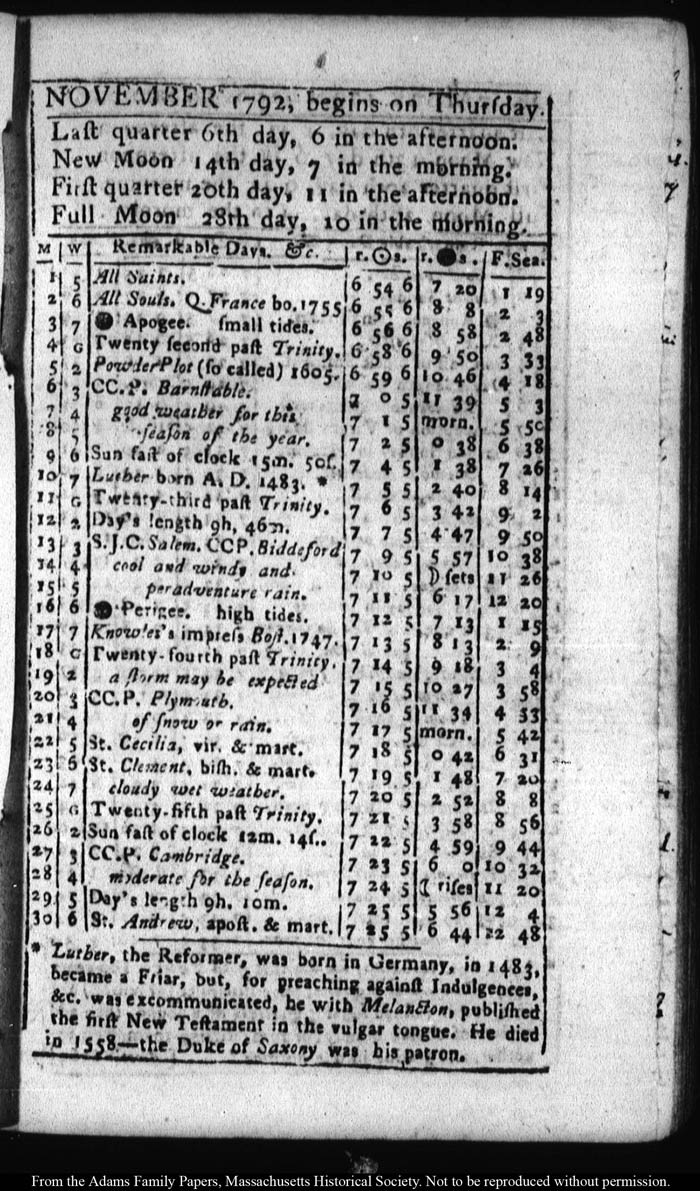 NOVEMBER 1792, begins on Thurſday.
Laſt quarter 6th day, 6 in the afternoon.
New Moon 14th day, 7 in the morning.
Firſt quarter 20th day, 11 in the afternoon.
Full Moon 28th day, 10 in the morning.
M | W | Remarkable Days. &c. | r. ☉ s. | r. ●s. | F. Sea.
1 5 All Saints. 6 54 6 7 20 1 19
2 6 All Souls. Q. France bo. 1755 6 55 6 8 8 2 3
3 7 ● Apogee. ſmall tides. 6 56 6 8 58 2 48
4 G Twenty ſecond paſt Trinity. 6 58 6 9 50 3 33
5 2 Powder Plot (ſo called) 1605. 6 59 6 10 46 4 18
6 3 CC.P. Barnſtable. 7 0 5 11 39 5 3
7 4 good weather for this 7 1 5 morn. 5 50
8 5 ſeaſon of the year. 7 2 5 0 38 6 38
9 6 Sun faſt of clock 15m. 50ſ. 7 4 5 1 38 7 26
10 7 Luther born A. D. 1483. * 7 5 5 2 40 8 14
11 G Twenty-third paſt Trinity. 7 6 5 3 42 9 2
12 2 Day's length 9h, 46m. 7 7 5 4 47 9 50
13 3 S.J.C. Salem. CCP. Biddeford 7 9 5 5 57 10 38
14 4 cool and winds and 7 10 5 ☽ ſets 11 26
15 5 peradventure rain. 7 11 5 6 17 12 20
16 6 ● Perigee. high tides. 7 12 5 7 13 1 15
17 7 Knowles's impreſs Boſt. 1747. 7 13 5 8 13 2 9
18 G Twenty-fourth paſt Trinity. 7 14 5 9 18 3 4
19 2 a ſtorm may be expected 7 15 5 10 27 3 58
20 3 CC.P. Plymouth. 7 16 5 11 34 4 33
21 4 of ſnow or rain. 7 17 5 morn. 5 42
22 5 St. Cecilia, vir. & mart. 7 18 5 0 42 6 31
23 6 St. Clement, biſh. & mart. 7 19 5 1 48 7 20
24 7 cloudy wet weather. 7 20 5 2 52 8 8
25 G Twenty-fifth paſt Trinity. 7 21 5 3 58 8 56
26 2 Sun faſt of clock 12m. 14ſ. 7 22 5 4 59 9 44
27 3 CC.P. Cambridge. 7 23 5 6 0 10 32
28 4 moderate for the ſeaſon. 7 24 5 ☾ riſes 11 20
29 5 Day's length 9h. 10m. 7 25 5 5 56 12 4
30 6 St. Andrew, apoſt. & mart. 7 25 5 6 44 22 48
* Luther, the Reformer, was born in Germany, in 1483,
became a Friar, but, for preaching againſt Indulgences,
&c. was excommunicated, he with Melancton, publiſhed
the firſt New Teſtament in the vulgar tongue. He died
in 1558.—the Duke of Saxony was his patron.
From the Adams Family Papers, Massachusetts Historical Society. Not to be reproduced without permission.